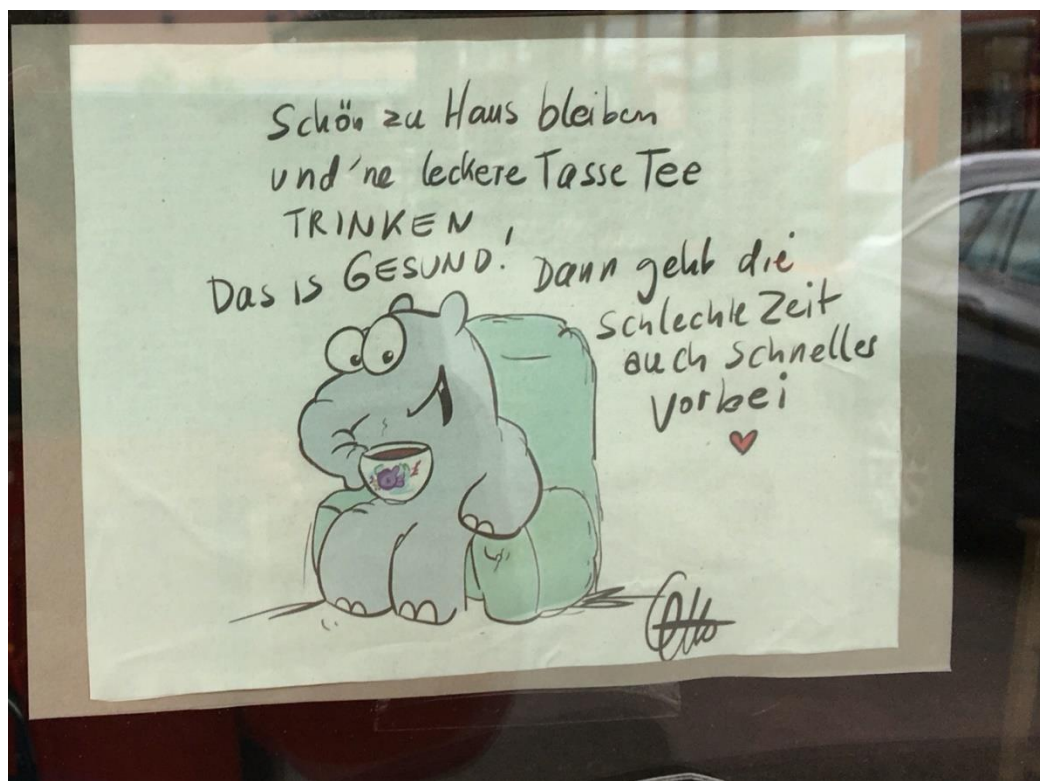 Schön zu Haus bleiben
und 'ne leckere Tasse Tee
TRINKEN
Das is GESUND! Dann geht die
schlechte Zeit
auch schneller
vorbei
Otto